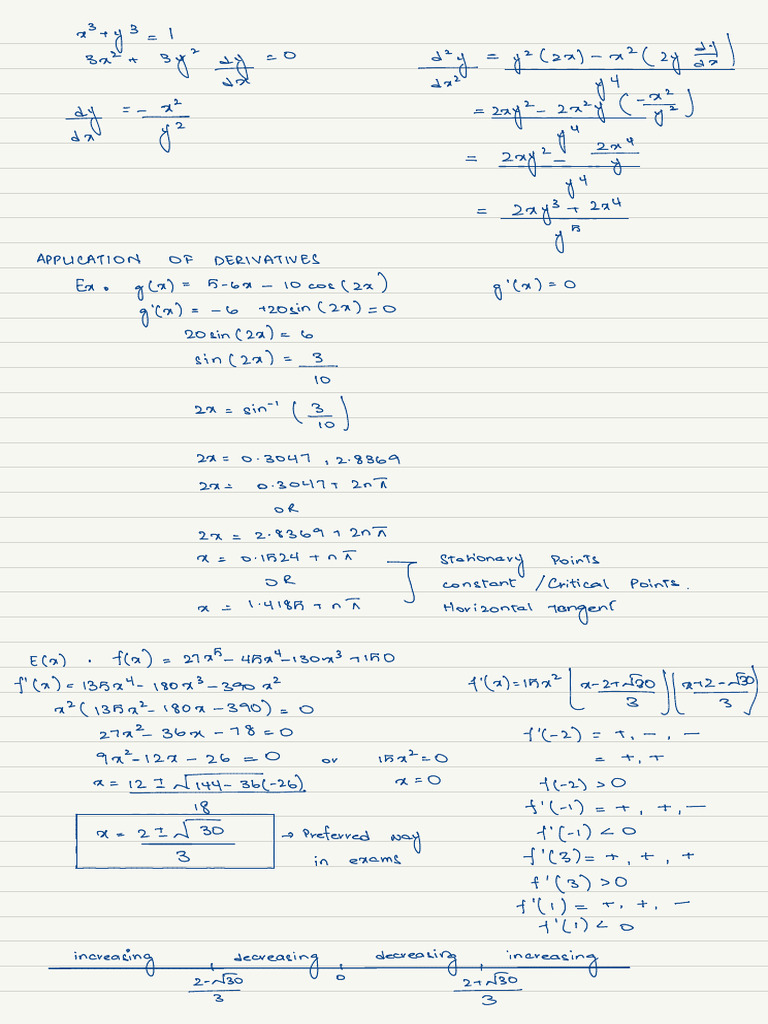 x³ + y³ = 1
3x² + 3y² dy/dx = 0
dy/dx = - x²/y²
d²y/dx² = (y²(2x) - x²(2y dy/dx))/y⁴
= (2xy² - 2x²y(-x²/y²))/y⁴
= (2xy² - 2x⁴/y)/y⁴
= (2xy³ + 2x⁴)/y⁵
APPLICATION OF DERIVATIVES
Ex. g(x) = 5-6x - 10 cos(2x)
g'(x) = 0
g'(x) = -6 +20sin(2x) = 0
20sin(2x) = 6
sin(2x) = 3/10
2x = sin⁻¹(3/10)
2x = 0.3047, 2.8369
2x = 0.3047 + 2nπ
OR
2x = 2.8369 + 2nπ
x = 0.1524 + nπ
OR
x = 1.4185 + nπ
Stationary Points
constant / Critical Points.
Horizontal tangent
E(x) . f(x) = 27x⁵ - 45x⁴ - 130x³ + 150
f'(x) = 135x⁴ - 180x³ - 390x²
x²(135x² - 180x - 390) = 0
27x² - 36x - 78 = 0
9x² - 12x - 26 = 0 or 15x² = 0
x = (12 ± √(144 - 36(-26)))/18
x = 0
x = (2 ± √30)/3 → Preferred way
in exams
f'(x) = 15x² ((x-2+√30)/3)((x+2-√30)/3)
f'(-2) = +, -, -
= +, +
f(-2) > 0
f'(-1) = +, +, -
f'(-1) < 0
f'(3) = +, +, +
f'(3) > 0
f'(1) = +, +, -
f'(1) < 0
increasing decreasing decreasing increasing
(2-√30)/3 0 (2+√30)/3